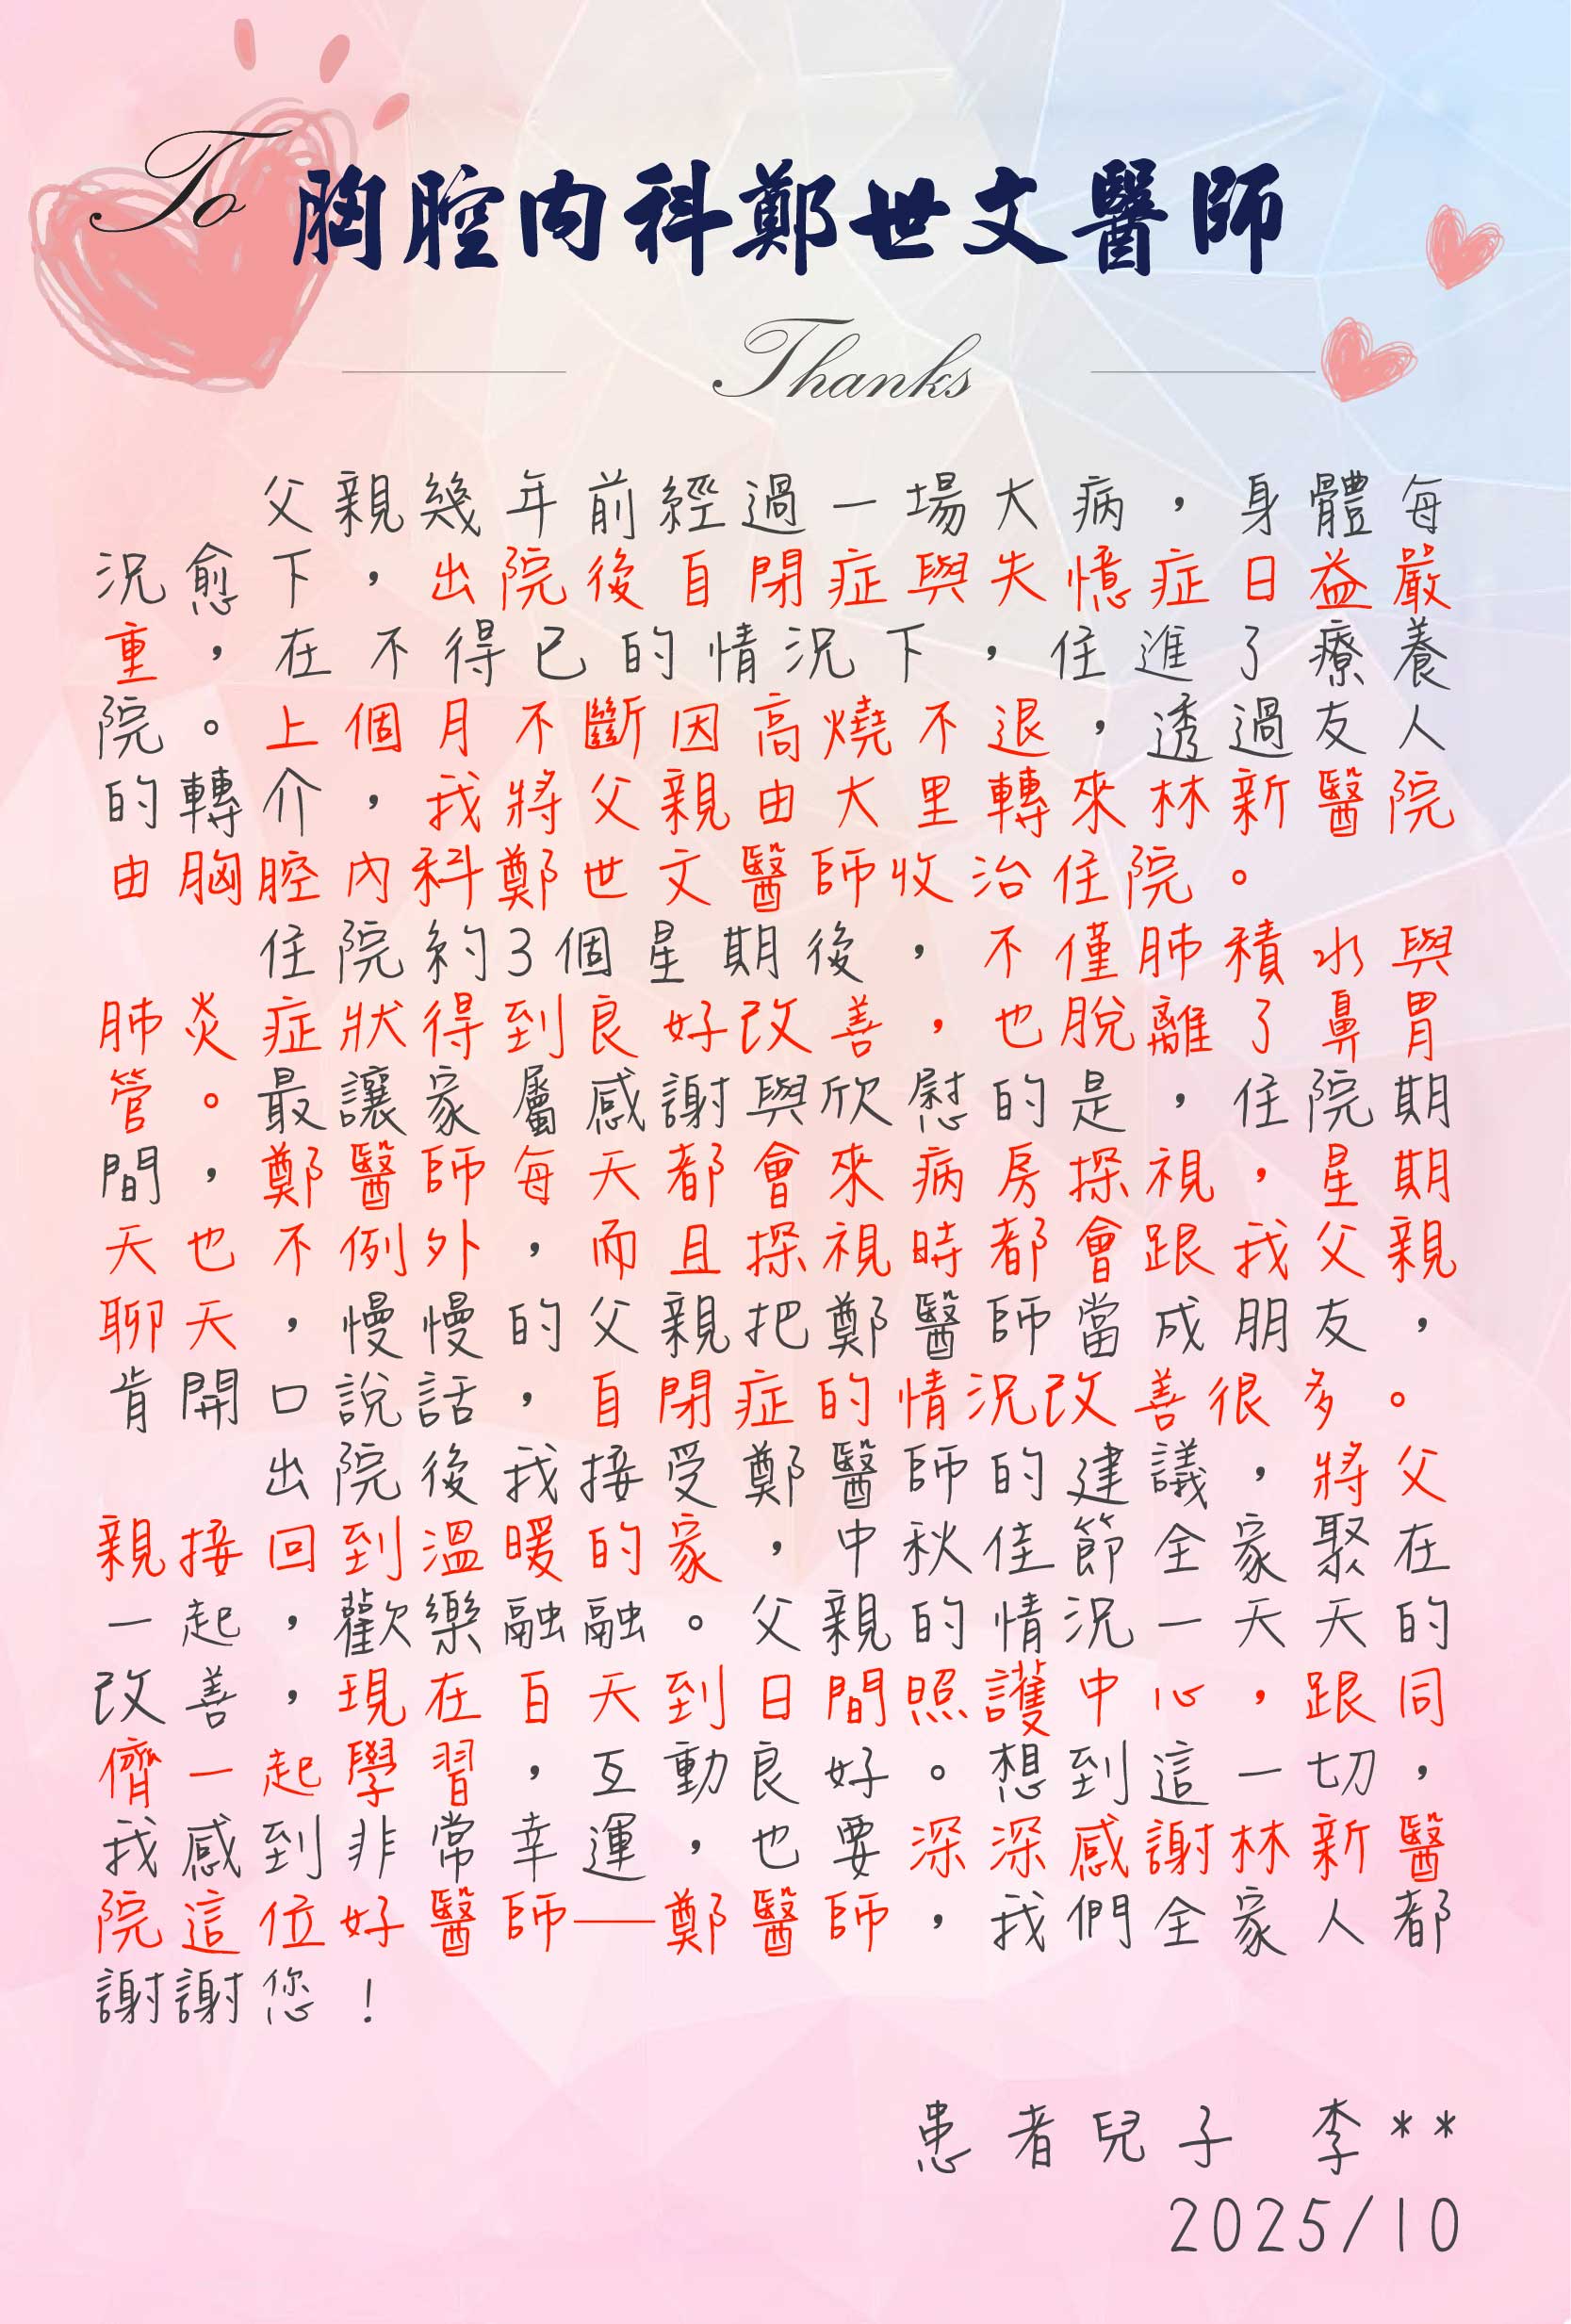 To 胸腔內科鄭世文醫師
Thanks
父親幾年前經過一場大病，身體每
況愈下，出院後自閉症與失憶症日益嚴
重，在不得已的情況下，住進了療養
院。上個月不斷因高燒不退，透過友人
的轉介，我將父親由大里轉來林新醫院
由胸腔內科鄭世文醫師收治住院。
住院約3個星期後，不僅肺積水與
肺炎症狀得到良好改善，也脫離了鼻胃
管。最讓家屬感謝與欣慰的是，住院期
間，鄭醫師每天都會來病房探視，星期
天也不例外，而且探視時都會跟我父親
聊天，慢慢的父親把鄭醫師當成朋友，
肯開口說話，自閉症的情況改善很多。
出院後我接受鄭醫師的建議，將父
親接回到溫暖的家，中秋佳節全家聚在
一起，歡樂融融。父親的情況一天天的
改善，現在白天到日間照護中心，跟同
儕一起學習，互動良好。想到這一切，
我感到非常幸運，也要深深感謝林新醫
院這位好醫師——鄭醫師，我們全家人都
謝謝您！
患者兒子 李**
2025/10